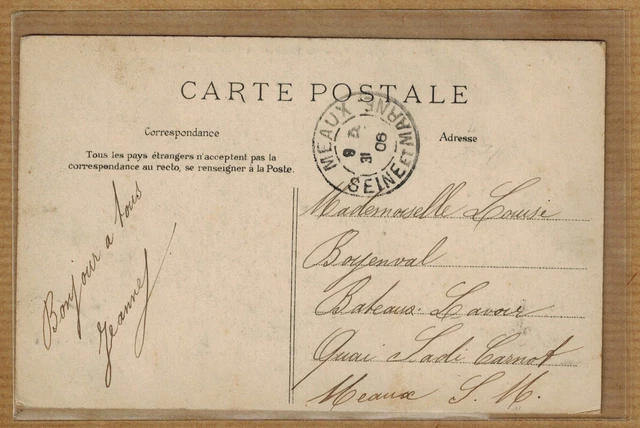 CARTE POSTALE
Correspondance
Adresse
Tous les pays étrangers n'acceptent pas la
correspondance au recto, se renseigner à la Poste.
MEAUX
SEINE ET MARNE
31
06
Bonjour a tous
Jeanne
Mademoiselle Louise
Boyenval
Bateaux Lavoir
Quai Sadi Carnot
Meaux S. M.